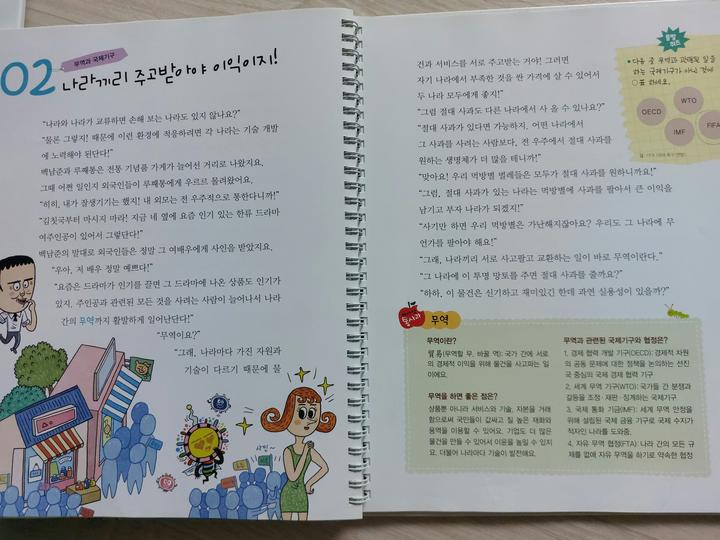 무역과 국제기구
02 나라끼리 주고받아야 이익이지!
"나라와 나라가 교류하면 손해 보는 나라도 있지 않나요?"
"물론 그렇지! 때문에 이런 환경에 적응하려면 각 나라는 기술 개발
에 노력해야 된단다!"
백남준과 루패통은 전통 기념품 가게가 늘어선 거리로 나왔지요.
그때 어떤 일인지 외국인들이 루패통에게 우르르 몰려왔어요.
"히히, 내가 잘생기기는 했지! 내 외모는 전 우주적으로 통한다니까!"
"김칫국부터 마시지 마라! 지금 네 옆에 요즘 인기 있는 한류 드라마
여주인공이 있어서 그렇단다!"
백남준의 말대로 외국인들은 정말 그 여배우에게 사인을 받았지요.
"우아, 저 배우 정말 예쁘다!"
"요즘은 드라마가 인기를 끌면 그 드라마에 나온 상품도 인기가
있지. 주인공과 관련된 모든 것을 사려는 사람이 늘어나서 나라
간의 무역까지 활발하게 일어난단다!"
"무역이요?"
"그래, 나라마다 가진 자원과
기술이 다르기 때문에 물
사인~
건과 서비스를 서로 주고받는 거야! 그러면
자기 나라에서 부족한 것을 싼 가격에 살 수 있어서
두 나라 모두에게 좋지!"
"그럼 절대 사과도 다른 나라에서 사 올 수 있나요?"
"절대 사과가 있다면 가능하지. 어떤 나라에서
그 사과를 사려는 사람보다, 전 우주에서 절대 사과를
원하는 생명체가 더 많을 테니까!"
"맞아요! 우리 먹방별 벌레들은 모두가 절대 사과를 원하니까요!"
"그럼, 절대 사과가 있는 나라는 먹방별에 사과를 팔아서 큰 이익을
남기고 부자 나라가 되겠지!"
"사기만 하면 우리 먹방별은 가난해지잖아요? 우리도 그 나라에 무
언가를 팔아야 해요!"
"그래, 나라끼리 서로 사고팔고 교환하는 일이 바로 무역이란다."
"그 나라에 이 투명 망토를 주면 절대 사과를 줄까요?"
"하하, 이 물건은 신기하고 재미있긴 한데 과연 실용성이 있을까?"
돌발 퀴즈
다음 중 무역과 관련된 일을
하는 국제기구가 아닌 것에
○표 하세요.
OECD
WTO
IMF
FIFA
똑사과
무역
무역이란?
貿易(무역할 무, 바꿀 역): 국가 간에 서로
의 경제적 이익을 위해 물건을 사고파는 일
이에요.
무역을 하면 좋은 점은?
상품뿐 아니라 서비스와 기술, 자본을 거래
함으로써 국민들이 값싸고 질 높은 재화와
용역을 이용할 수 있어요. 기업도 더 많은
물건을 만들 수 있어서 이윤을 높일 수 있지
요. 더불어 나라마다 기술이 발전해요.
무역과 관련된 국제기구와 협정은?
1. 경제 협력 개발 기구(OECD): 경제적 차원
의 공동 문제에 대한 정책을 논의하는 선진
국 중심의 국제 경제 협력 기구
2. 세계 무역 기구(WTO): 국가들 간 분쟁과
갈등을 조정·재판·징계하는 국제기구
3. 국제 통화 기금(IMF): 세계 무역 안정을
위해 설립된 국제 금융 기구로 국제 수지가
적자인 나라를 도와줌.
4. 자유 무역 협정(FTA): 나라 간의 모든 규
제를 없애 자유 무역을 하기로 약속한 협정